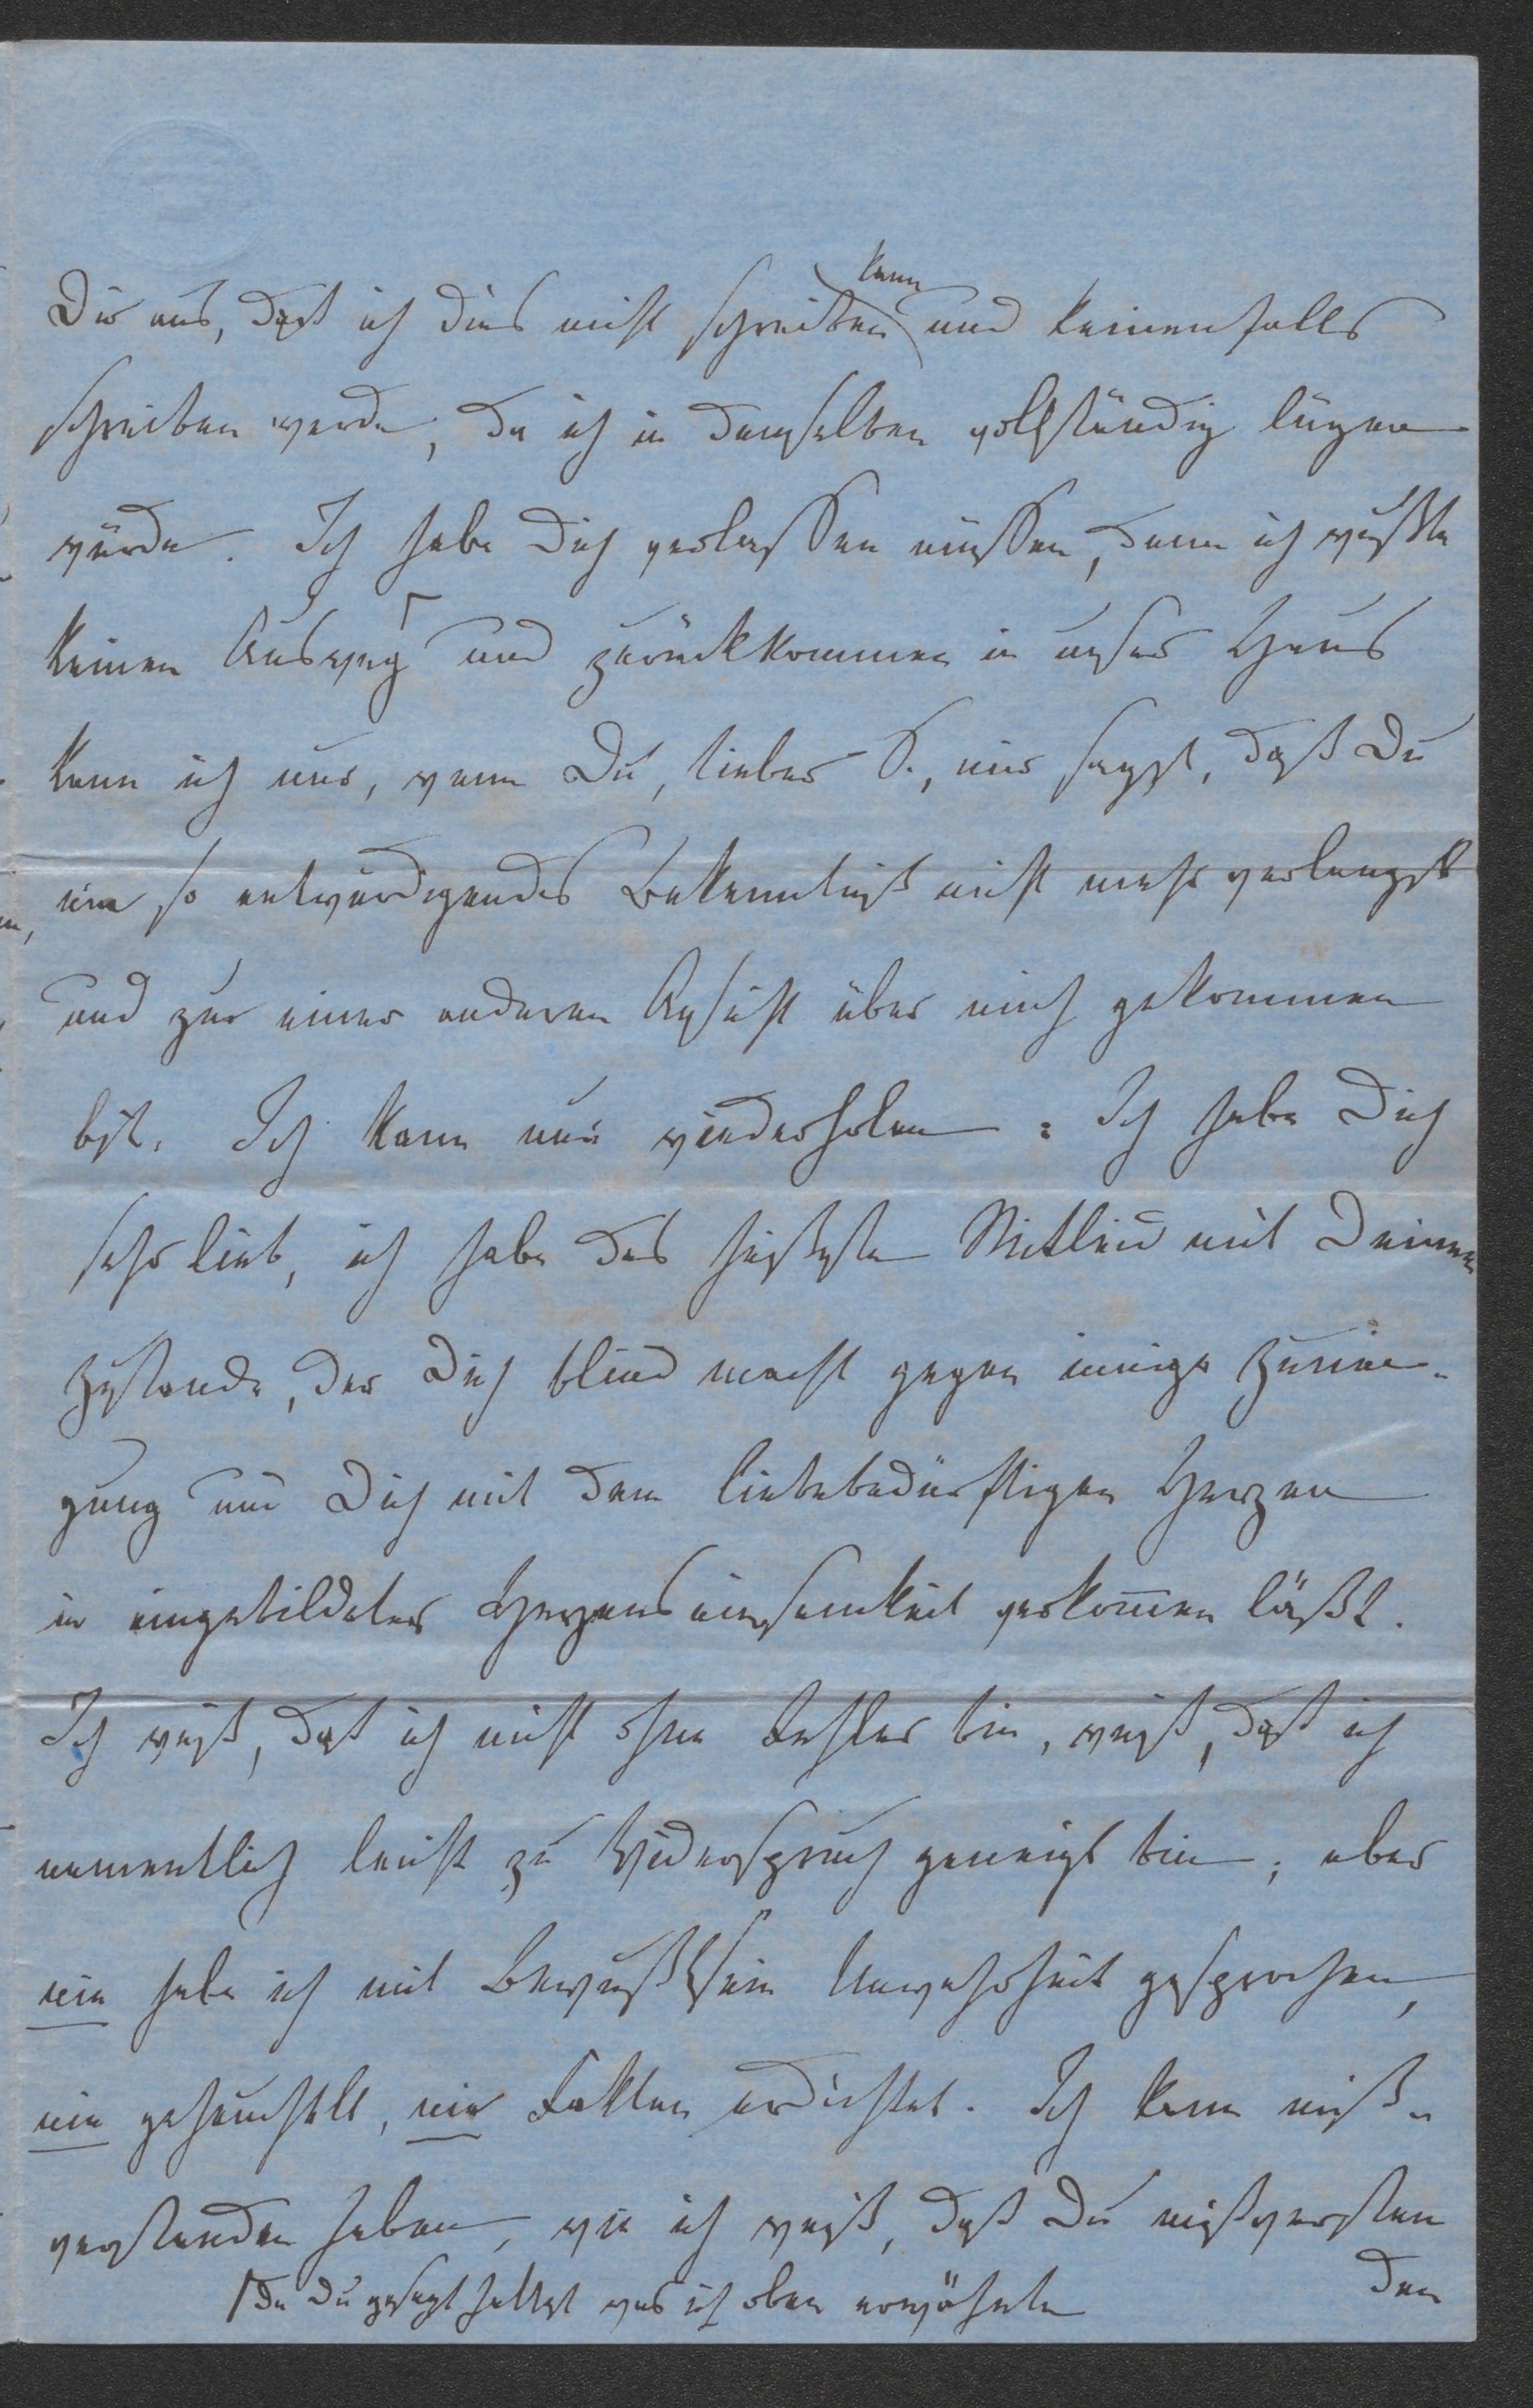 Dir aus, daß ich dies nicht schreiben kann und keinenfalls
schreiben werde, da ich in demselben vollständig lügen
würde. Ich habe Dich verlassen müssen, denn ich wußte
keinen Ausweg ⌈ und zurückkommen in unser Haus
kann ich nur, wenn Du, lieber S., mir sagst, daß Du
ein so entwürdigendes Bekenntniß nicht mehr verlangst
und zur einer anderen Ansicht über mich gekommen
bist. Ich kann nur wiederholen: Ich habe Dich
sehr lieb, ich habe das heißeste Mitleid mit Deinem
Zustande, der Dich blind macht gegen innige Zunei-
gung und Dich mit dem liebebedürftigen Herzen
in eingebildeter Herzenseinsamkeit verkom̄en läßt.
Ich weiß, daß ich nicht ohne Fehler bin, weiß, daß ich
namentlich leicht zu Widerspruch geneigt bin; aber
nie habe ich mit Bewußtsein Unwahrheit gesprochen,
nie geheuchelt, nie Fakten erdichtet. Ich kann miß-
verstanden haben, wie ich weiß, daß Du mißverstan
den
⌈Da Du gesagt hattest was ich oben erwähnte